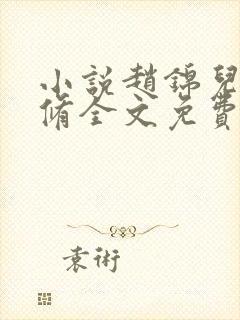 小說趙錦兒
脩全文免費
袁術